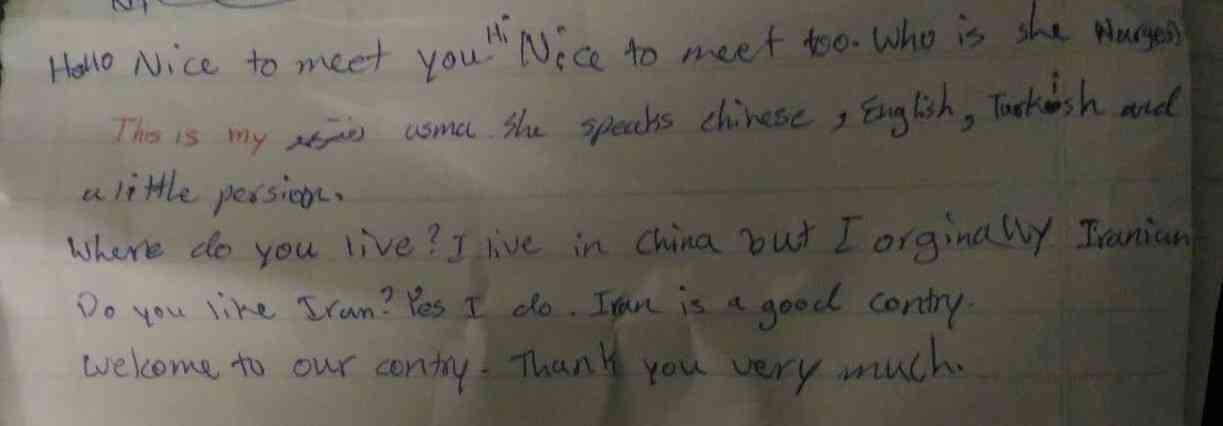 Hello Nice to meet you. Hi Nice to meet too. Who is she Narges)
This is my asma she speaks chinese, English, Turkish and
a little persion.
Where do you live? I live in China but I orginally Iranian
Do you like Iran? Yes I do. Iran is a good contry.
welcome to our contry. Thank you very much.